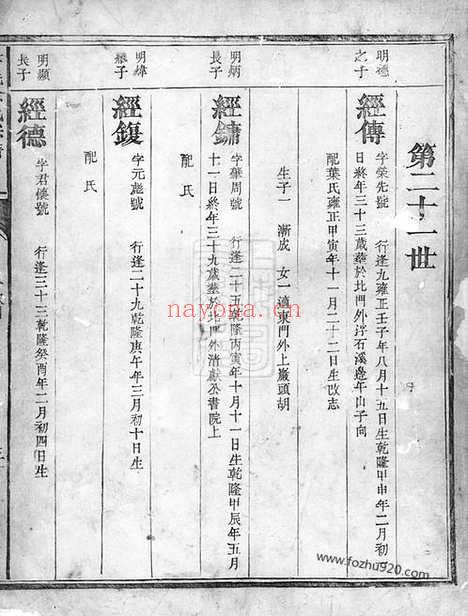 第二十一世
明德之子
經傳
字榮先號 行逢九雍正壬子年八月十五日生乾隆甲申年二月初
日終年三十三歲葬於北門外浮石溪邊午山子向
配葉氏雍正甲寅年十一月二十二日生改志
生子一 漸成 女一適東門外上嚴頭胡
明炳長子
經鏞
字華周號 行逢二十五乾隆丙寅年十月十一日生乾隆甲辰年五月
十一日終年三十九歲葬於北門外清獻公書院上
配 氏
明緯長子
經鍑
字元彪號 行逢二十九乾隆庚午年三月初十日生
配 氏
明顯長子
經德
字君懷號 行逢三十三乾隆癸酉年二月初四日生
nayona.cn
www.fozhu920.com